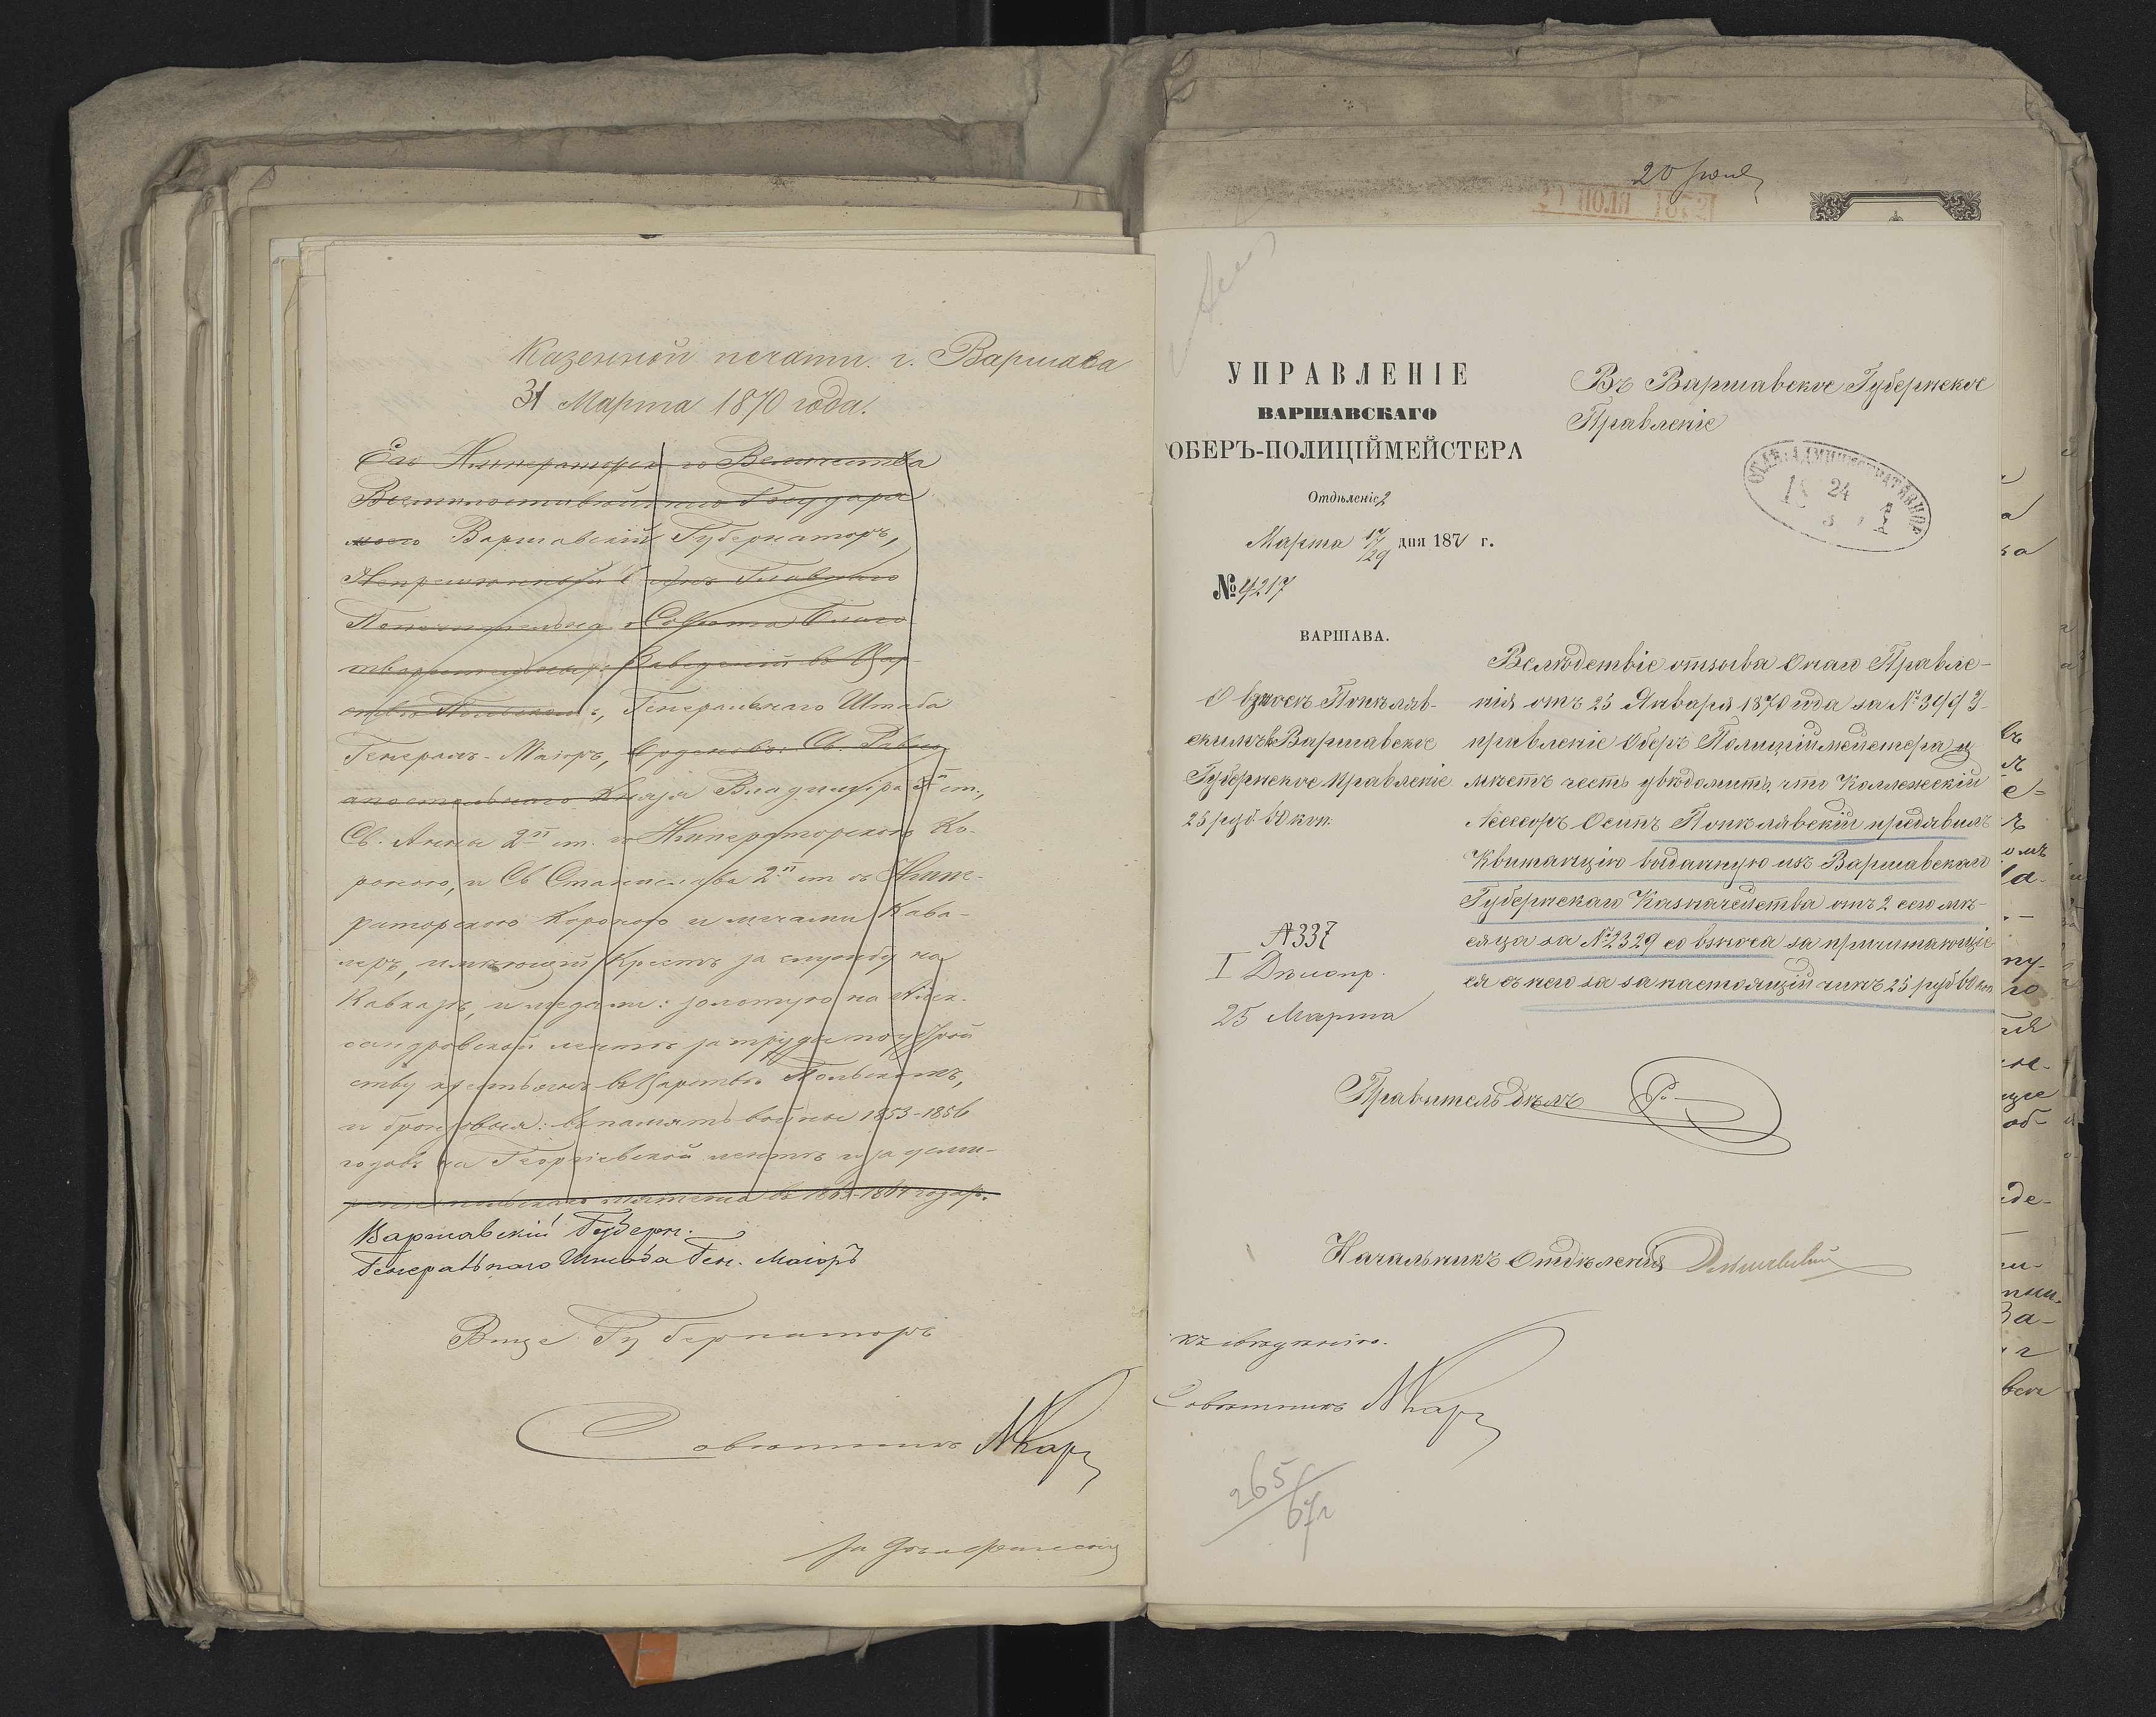 Казенной печати. г. Варшава
31 Марта 1870 года.
Его Императорского Величества
Всемилостивейшаго Государя
моего Варшавскій Губернаторъ,
Непременный Членъ Главнаго
Попечительнаго Совета Благо
творительныхъ Заведеній въ Цар-
стве Польскомъ, Генеральнаго Штаба
Генералъ-Маіоръ, Орденовъ: Св. Равно
апостольнаго Князя Владиміра 3й ст.,
Св. Анны 2й ст. съ Императорскою Ко-
роною, и Св Станислава 2й ст съ Импе-
раторскою Короною и мечами Кава-
леръ, имеющій Крестъ за службу на
Кавказе, и медали: золотую на Алек-
сандровской ленте за труды по устрой
ству крестьянъ въ Царстве Польскомъ,
и бронзовыя: въ память войны 1853-1856
годовъ на Георгіевской ленте и за усми-
реніе польскаго мятежа въ 1863-1864 годахъ.
Варшавскій Губерн.
Генеральнаго Штаба Ген. Маіоръ
Вице Губернаторъ
Советникъ
За
20 Іюня
УПРАВЛЕНІЕ
ВАРШАВСКАГО
ОБЕРЪ-ПОЛИЦІЙМЕЙСТЕРА
Отдѣленіе 2
Марта 17/29 дня 1871 г.
№ 4217
ВАРШАВА.
Въ Варшавское Губернское
Правленіе
24
О взносе Попелав-
скимъ въ Варшавское
Губернское Правленіе
25 руб 50 коп.
Вслѣдствіе отзыва Онаго Правле-
нія отъ 23 Января 1870 года за № 3993
правленіе Оберъ Полиціймейстера и
мѣетъ честь увѣдомить, что Коллежскій
Ассесоръ Осипъ Попелявскій предъявилъ
Квитанцію выданную изъ Варшавскаго
Губернскаго Казначейства отъ 2 сего мѣ-
сяца за № 2329 во взносѣ за причитающіе
ся съ него за за настоящій чинъ 25 руб 50 коп
№ 337
I Дѣлопр.
25 Марта
Правитель дѣлъ
Начальникъ Отдѣленія
къ свѣдѣнію.
Совѣтникъ
265/67